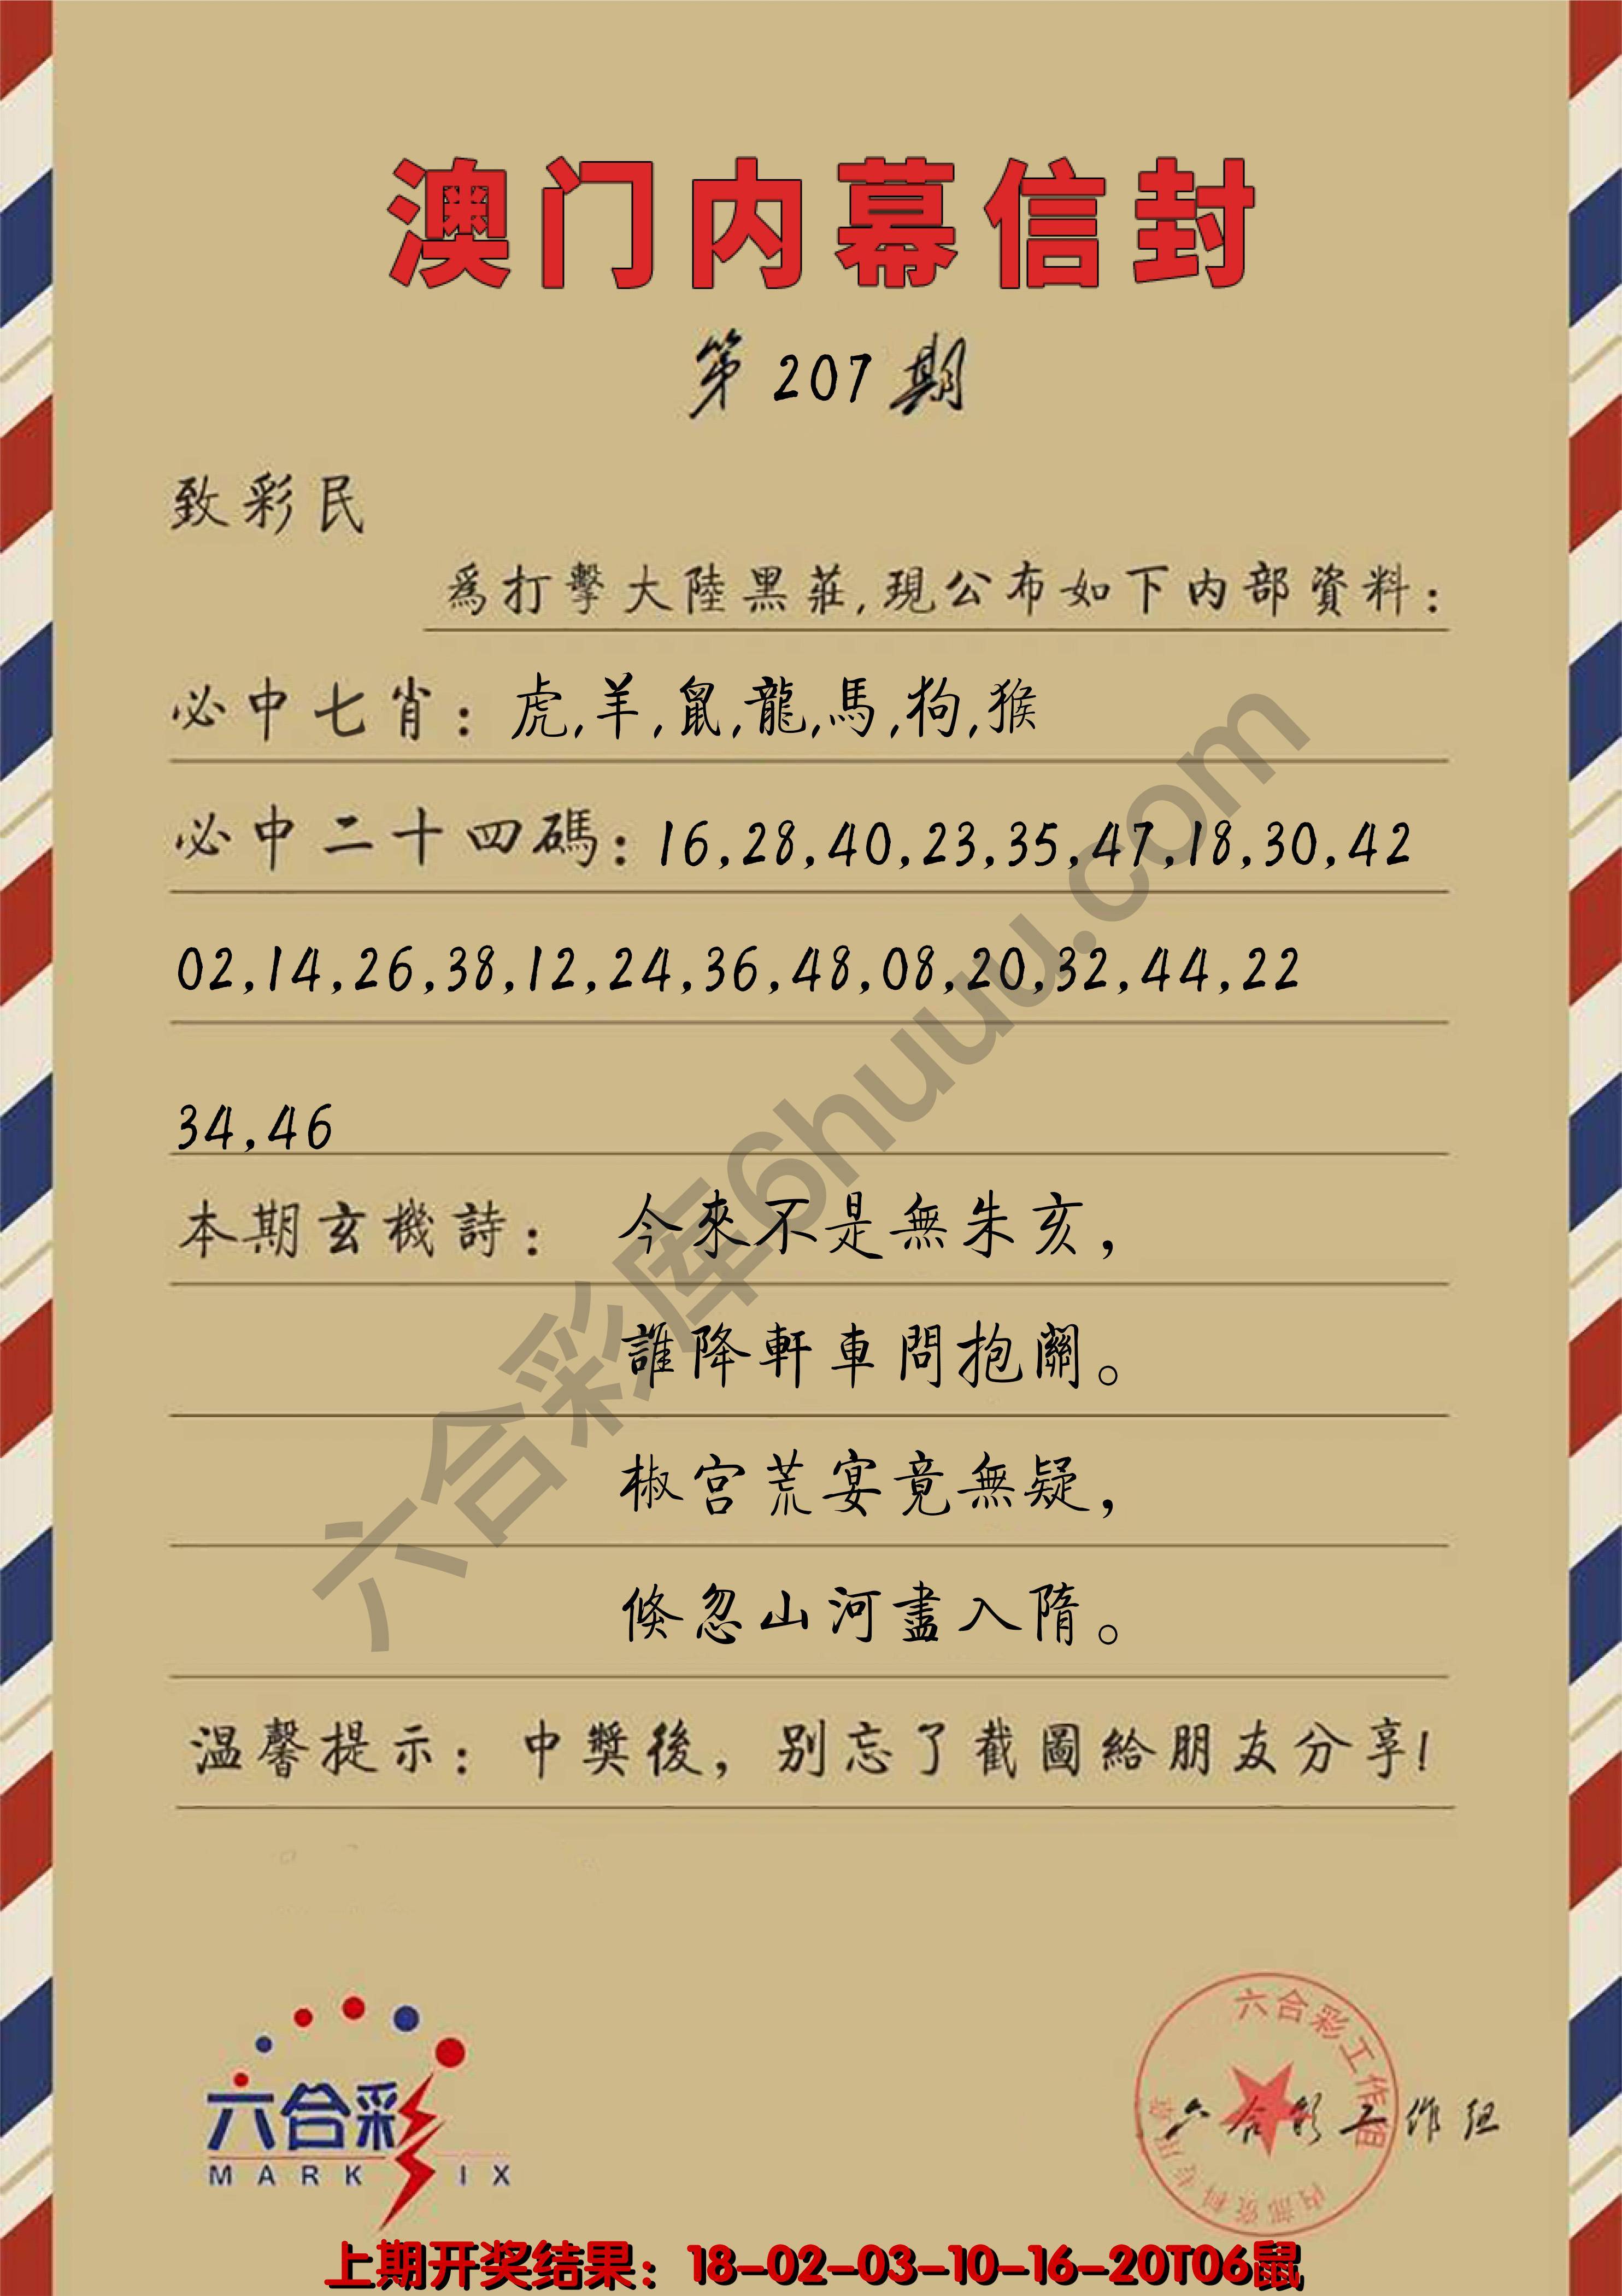 澳门内幕信封
第207期
致彩民
爲打擊大陸黑莊,現公布如下内部資料:
必中七肖:虎,羊,鼠,龍,馬,狗,猴
必中二十四碼:16,28,40,23,35,47,18,30,42
02,14,26,38,12,24,36,48,08,20,32,44,22
34,46
本期玄機詩: 今來不是無朱亥,
誰降軒車問抱關。
椒宮荒宴竟無疑,
倏忽山河盡入隋。
温馨提示:中獎後,别忘了截圖給朋友分享!
六合彩库6huuu.com
六合彩
MARK SIX
六合彩工作组
内部资料专用章
六合彩工作组
上期开奖结果:18-02-03-10-16-20T06鼠